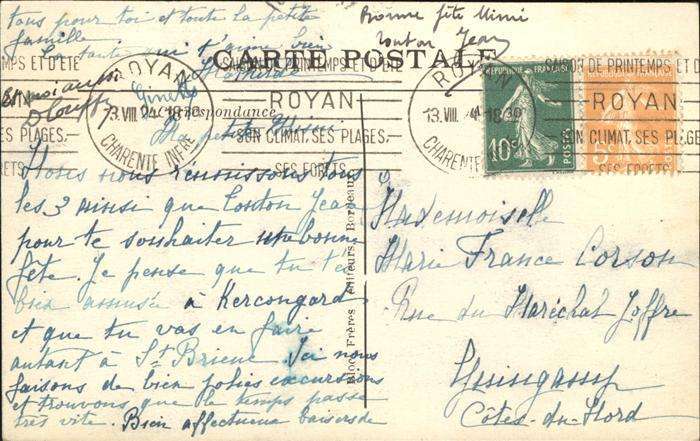 CARTE POSTALE
Correspondance
Ma petite Mimi
Nous nous réunissons tous
les 3 ainsi que tonton Jean
pour te souhaiter une bonne
fête. Je pense que tu t'es
bien amusée à
et que tu vas en faire
autant à St Brieuc Ici nous
faisons de bien jolies excursions
et trouvons que le temps passe
très vite. Bien affectueux baisers de
tous pour toi et toute la petite
famille.
Ta tante qui t'aime bien
Ginette
Et moi aussi
Bonne fête Mimi
tonton Jean
ROYAN
13. VIII 18 30
CHARENTE INFRE
SAISON DE PRINTEMPS ET D'ÉTÉ
ROYAN
SON CLIMAT, SES PLAGES,
SES FORETS
ROYAN
13. VIII 18 30
CHARENTE INFRE
SAISON DE PRINTEMPS ET D'ÉTÉ
ROYAN
SON CLIMAT, SES PLAGES
SES FORETS
RÉPUBLIQUE FRANÇAISE
10c
POSTES
5c
Bloc Frères, éditeurs Bordeaux
Mademoiselle
Marie France Corson
Rue du Maréchal Joffre
Guingamp
Côtes-du-Nord